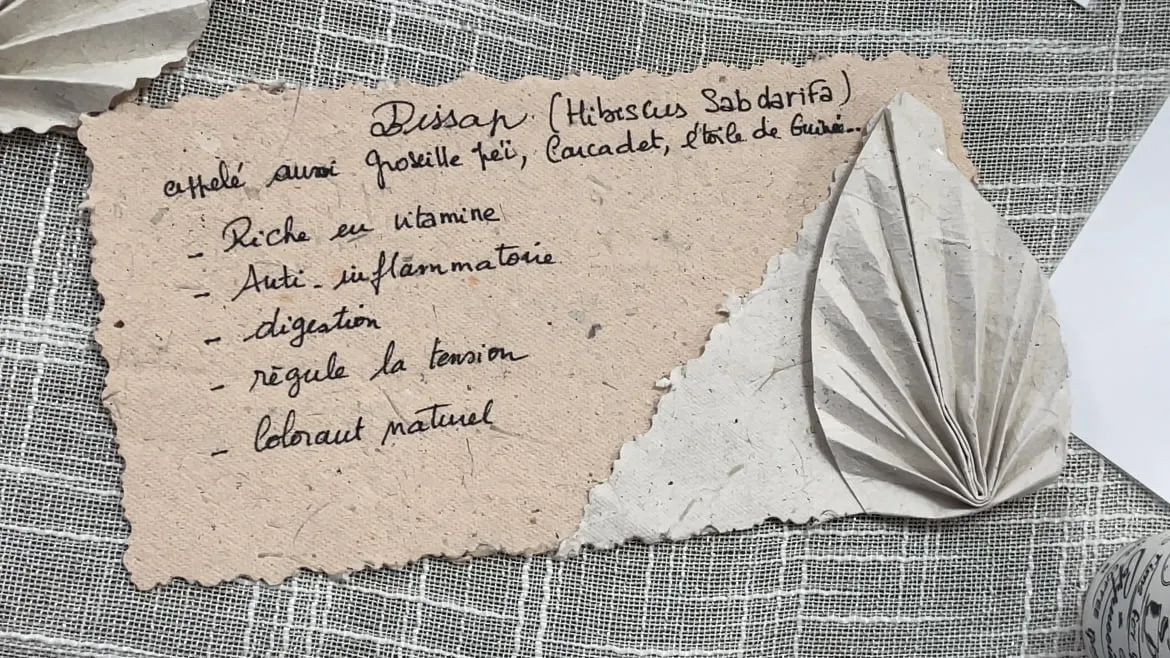 Bissap (Hibiscus Sabdarifa)
appelé aussi groseille peï, Carcadet, étoile de Guinée..
- Riche en vitamine
- Anti-inflammatorie
- digestion
- règule la tension
- Colorant naturel